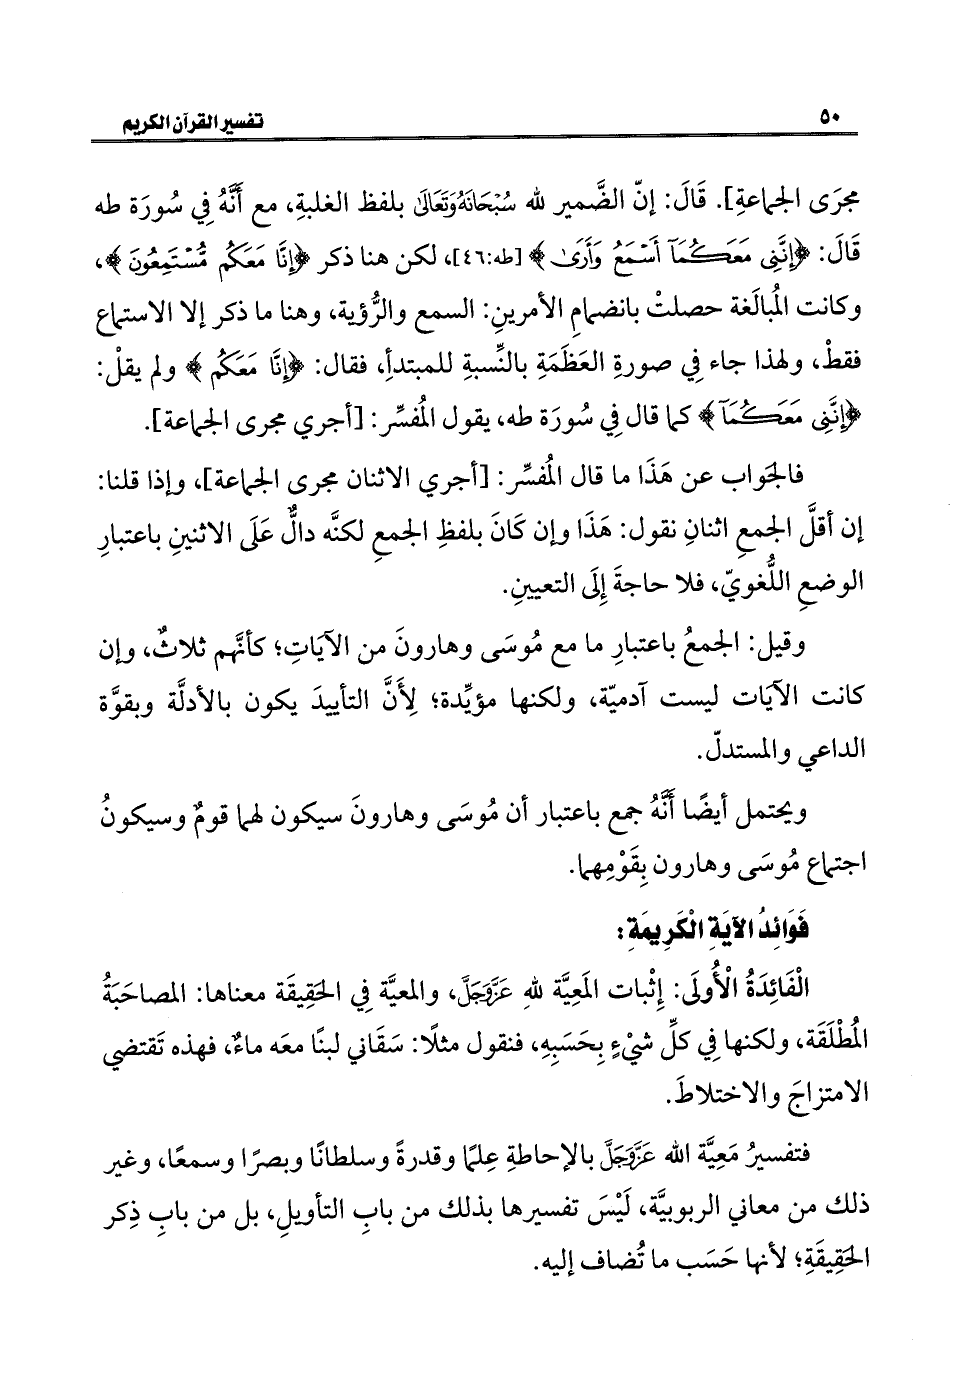 ٥٠
تفسير القرآن الكريم
مجرَى الجماعةِ]. قَالَ: إنّ الضَّمير لله سُبْحَانَهُ وَتَعَالَىٰ بلفظ الغلبةِ، مع أنَّهُ فِي سُورَة طه
قَالَ: ﴿إِنَّنِي مَعَكُمَآ أَسْمَعُ وَأَرَىٰ﴾ [طه:٤٦]، لكن هنا ذكر ﴿إِنَّا مَعَكُم مُّسْتَمِعُونَ﴾،
وكانت المُبالَغة حصلتْ بانضمامِ الأمرينِ: السمع والرُّؤية، وهنا ما ذكر إلا الاستماع
فقطْ، ولهذا جاء فِي صورةِ العَظَمَةِ بالنِّسبةِ للمبتدأِ، فقال: ﴿إِنَّا مَعَكُم﴾ ولم يقلْ:
﴿إِنَّنِي مَعَكُمَآ﴾ كما قال فِي سُورَة طه، يقول المُفسِّر: [أجري مجرى الجماعة].
فالجَواب عن هَذَا ما قال المُفسِّر: [أجري الاثنان مجرى الجماعة]، وإذا قلنا:
إن أقلَّ الجمعِ اثنانِ نقول: هَذَا وإن كَانَ بلفظِ الجمعِ لكنَّه دالٌّ عَلَى الاثنينِ باعتبارِ
الوضعِ اللُّغويّ، فلا حاجةَ إِلَى التعيينِ.
وقيل: الجمعُ باعتبارِ ما مع مُوسَى وهارونَ من الآيَاتِ؛ كأنَّهم ثلاثٌ، وإن
كانت الآيَات ليست آدميّة، ولكنها مؤيِّدة؛ لِأَنَّ التأييدَ يكون بالأدلَّة وبقوَّة
الداعي والمستدلّ.
ويحتمل أيضًا أَنَّهُ جمع باعتبار أن مُوسَى وهارونَ سيكون لهما قومٌ وسيكونُ
اجتماع مُوسَى وهارون بِقَوْمِهما.
فَوَائِدُ الآيَةِ الْكَرِيمَةِ:
الْفَائِدَةُ الْأُولَى: إِثْبات المَعِيَّة للهِ عَزَّوَجَلَّ، والمعيَّة فِي الحَقِيقَة معناها: المصاحَبَةُ
المُطْلَقَة، ولكنها فِي كلِّ شيْءٍ بِحَسَبِهِ، فنقول مثلًا: سَقَاني لبنًا معَه ماءٌ، فهذه تَقتضي
الامتزاجَ والاختلاطَ.
فتفسيرُ مَعِيَّة الله عَزَّوَجَلَّ بالإحاطةِ عِلمًا وقدرةً وسلطانًا وبصرًا وسمعًا، وغير
ذلك من معاني الربوبيَّة، لَيْسَ تفسيرها بذلك من بابِ التأويلِ، بل من بابِ ذِكر
الحَقِيقَةِ؛ لأنها حَسَب ما تُضاف إليه.